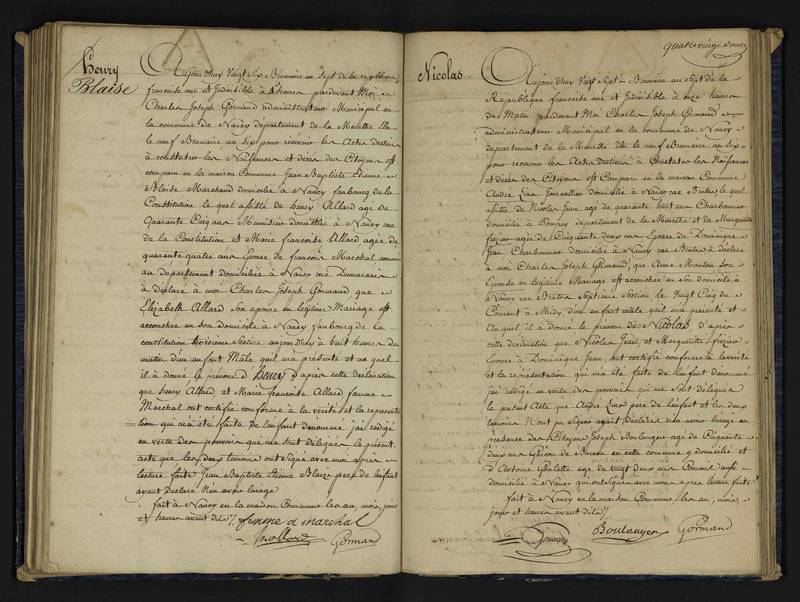 Henry
Blaise
Aujourdhuy Vingt Six Brumaire an Sept de la republique
francoise une et Indivisible à heures pardevant Moi
Charles Joseph Gormand administrateur Municipal en
la commune de Nancy département de la Meurthe Elu
le neuf Brumaire an Six pour recevoir les Actes destinés
à constater les Naissances et décès des Citoyens est
comparu en la maison Commune Jean Baptiste Etienne
Blaise Marchand domicilié à Nancy faubourg de la
Constitution lequel assisté de henry Allard age de
Quarante Cinq ans Menuisier domicilié à Nancy rue
de la Constitution et Marie francoise Allard agée de
quarante quatre ans Epouse de francois Marechal commis
au Departement domiciliée à Nancy rue
à déclaré à moi Charles Joseph Gormand que
Elizabeth Allard Son epouse en légitime Mariage est
accouchée en son domicile à Nancy faubourg de la
constitution Section aujourdhuy à huit heures du
matin d'un enfant Mâle quil ma présenté et au quel
il à donné le prénom d'Henry, d'après cette déclaration
que henry Allard et Marie francoise Allard femme
Marchal ont certifiée conforme à la vérité et la représenta
tion qui m'a été faite de l'enfant dénommé j'ai rédigé
en vertu des pouvoirs qui me sont délégués le présent
acte que les deux temoins ont Signé avec moi après
lecture faite Jean Baptiste Etienne Blaize pere de l'enfant
ayant Declaré Nen avoir lusage
fait à Nancy en la maison Commune les an, mois, jour
et heures avant dits /. femme d marchal
Gormand
quatrevingt douze
Nicolas
Aujourdhuy Vingt Sept Brumaire an Sept de la
République francoise une et Indivisible à onze heures
du Matin pardevant Moi Charles Joseph Gormand
administrateur Municipal en la commune de Nancy
departement de la Meurthe Elu le neuf Brumaire an Six
pour recevoir les Actes destinés à Constater les Naissances
et décès des Citoyens est Comparu en la maison Commune
André Lux Journallier domicilié à Nancy rue Brutus lequel
assisté de Nicolas Jean age de quarante huit ans Charbonnier
domicilié à département de la Meurthe et de Marguerite
agée de Cinquante deux ans Epouse de Dominique
Jean Charbonnier domiciliée à Nancy rue Brutus à déclaré
à moi Charles Joseph Gormand, que Anne Son
Epouse en légitime Mariage est accouchée en Son domicile à
Nancy rue Brutus Septieme Section le Vingt Cinq du
Courant à Midy d'un enfant mâle quil ma présenté et
Auquel il à donné le prenom de Nicolas d'après
cette déclaration que Nicolas Jean, et Marguerite
Epouse à Dominique Jean, ont certifié conforme à la vérité
et la représentation qui ma été faite de l'enfant denommé
j'ai redigé en vertu des pouvoirs qui me Sont délégués
le present Acte que André Lux pere de l'enfant et les deux
temoins N'ont pu Signer ayant Declarés nen avoir lusage en
présence des Citoyens Joseph Boulanger age de Cinquante
deux ans Garcon de Bureau en cette commune y domicilié et
d'Antoine age de Vingt deux ans Commis aussi
domicilié à Nancy qui ont Signé avec moi après lecture faite
fait à Nancy en la maison Commune les an, mois,
jour et heures avant dits /.
Boulanger Gormand